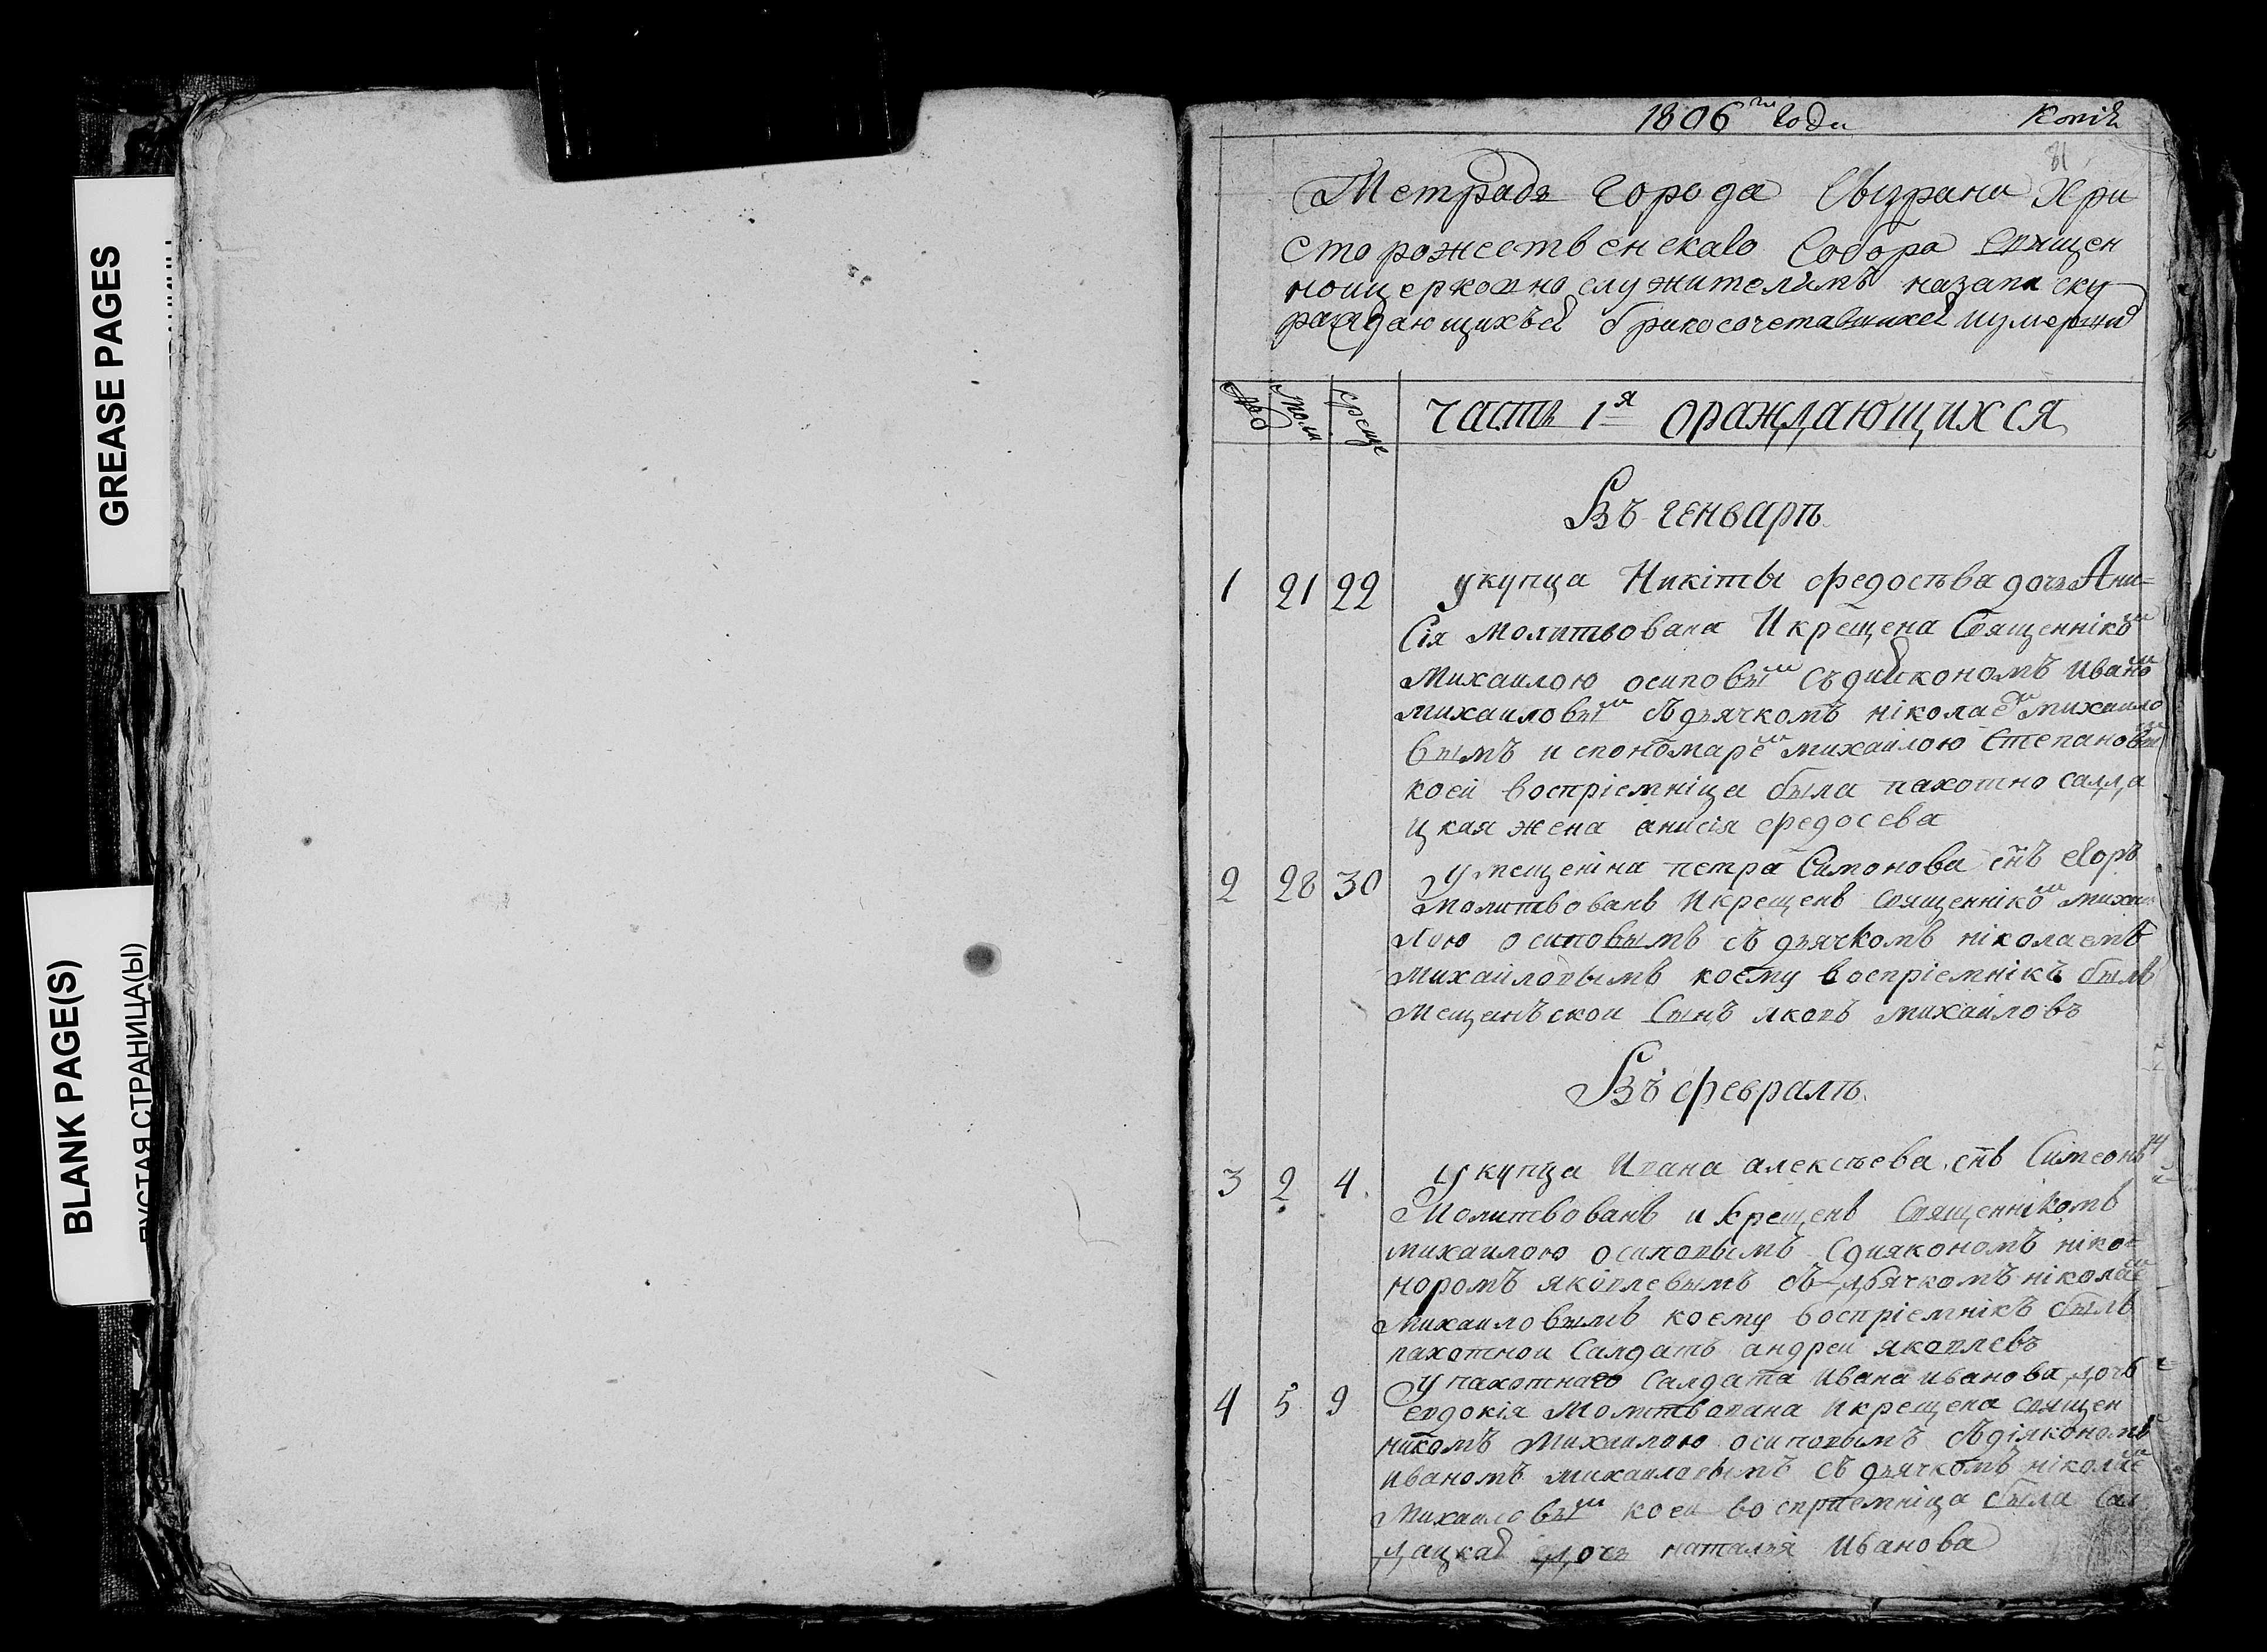 GREASE PAGES
BLANK PAGE(S)
ПУСТАЯ СТРАНИЦА(Ы)
1806го года
Копія
81
Тетрадь города Сызрана Хри
сторожественскаго Собора Священ
ноицерковно служителямъ назапи ску
раждающихъся бракосочетавшихся иумерши
Число
крещ
часть 1я ораждающихся
Въ генварѣ
1 21 22 укупца Нікіты федосѣва дочь Ани=
сія молитвована Икрещена Священнікомъ
Михаилою осиповымъ съдиякономъ иваномъ
михаиловымъ съдьячкомъ ніколаемъ михаило
вымъ и спономаремъ михаилою Степановым
коей воспріемніца была пахотно салда
цкая жена анисія федосева
2 28 30 умещеніна петра Симонова снъ егоръ
молитвованъ Икрещенъ Священнікомъ михаи
лою осиповымъ съ дьячкомъ ніколаемъ
михайловымъ коему воспріемнікъ былъ
мещанъской Сынъ яковъ михайловъ
Въ февралѣ
3 2 4 укупца Ивана алексѣева снъ Симеонъ
Молитвованъ и крещенъ Священнікомъ
михаилою осиповымъ Сдиякономъ ніка=
норомъ яковлевымъ съ дьячкомъ ніколаемъ
михаиловымъ коему воспріемнікъ былъ
пахотнои Салдатъ андреи яковлевъ
4 5 9 упахотнаго Салдата ивана иванова дочь
евдокія Молитвована Икрещена священ
никомъ Михаилою осиповымъ съдіякономъ
иваномъ михаиловымъ съ дьячкомъ ніколаемъ
михаиловымъ коеи воспріемніца была Сал
дацкая дочь наталья Иванова